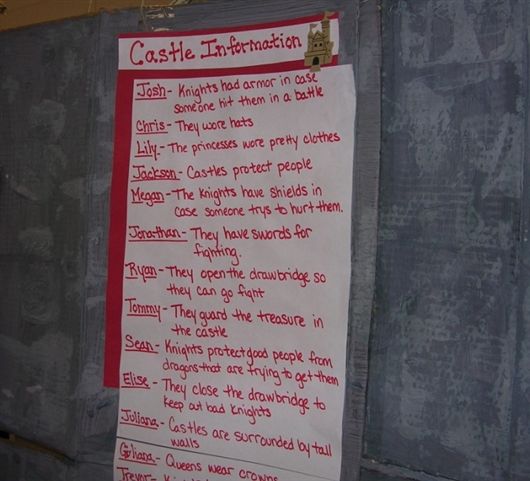 Castle Information
Josh - Knights had armor in case
someone hit them in a battle
Chris - They wore hats
Lily - The princesses wore pretty clothes
Jackson - Castles protect people
Megan - The knights have shields in
case someone trys to hurt them.
Jonathan - They have swords for
fighting.
Ryan - They open the drawbridge so
they can go fight
Tommy - They guard the treasure in
the castle
Sean - Knights protect good people from
dragons that are trying to get them
Elise - They close the drawbridge to
keep out bad knights
Juliana - Castles are surrounded by tall
walls
Giliana - Queens wear crowns
Trevor -